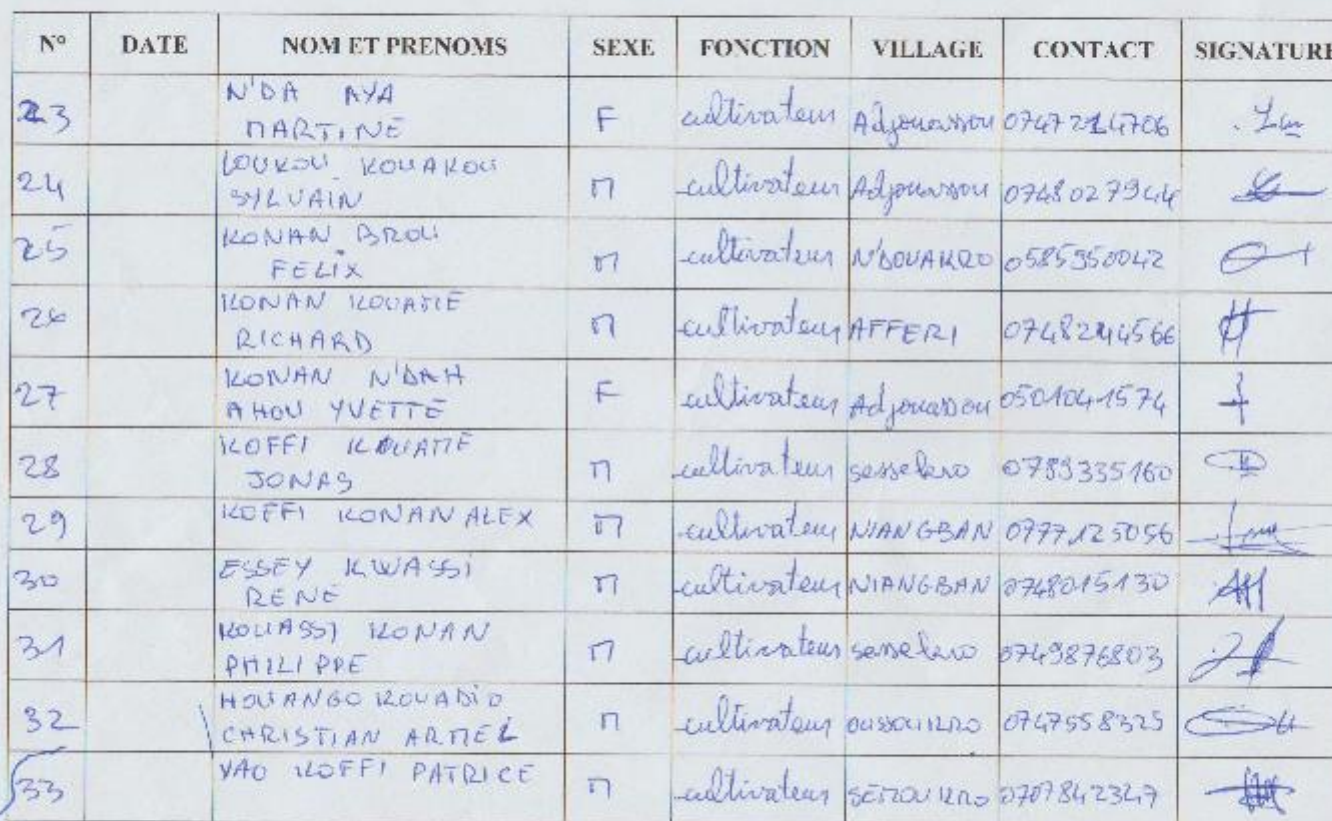 N° DATE NOM ET PRENOMS SEXE FONCTION VILLAGE CONTACT SIGNATURE
23 N'DA AYA MARTINE F cultivateur Adjouassou 0747214706
24 LOUKOU KOUAKOU SYLVAIN M cultivateur Adjouassou 0748027944
25 KONAN BROU FELIX M cultivateur N'DOUAKRO 0585950042
26 KONAN KOUAME RICHARD M cultivateur AFFERI 0748244566
27 KONAN N'DAH AHOU YVETTE F cultivateur Adjouassou 0501041574
28 KOFFI KOUAME JONAS M cultivateur sessekro 0789335160
29 KOFFI KONAN ALEX M cultivateur NIANGBAN 0777125056
30 ESSEY KWASSI RENE M cultivateur NIANGBAN 0748015130
31 KOUASSI KONAN PHILIPPE M cultivateur sessekro 0749876803
32 HOUANGO KOUADIO CHRISTIAN ARMEL M cultivateur oussoukro 0747558325
33 YAO KOFFI PATRICE M cultivateur 0707842347